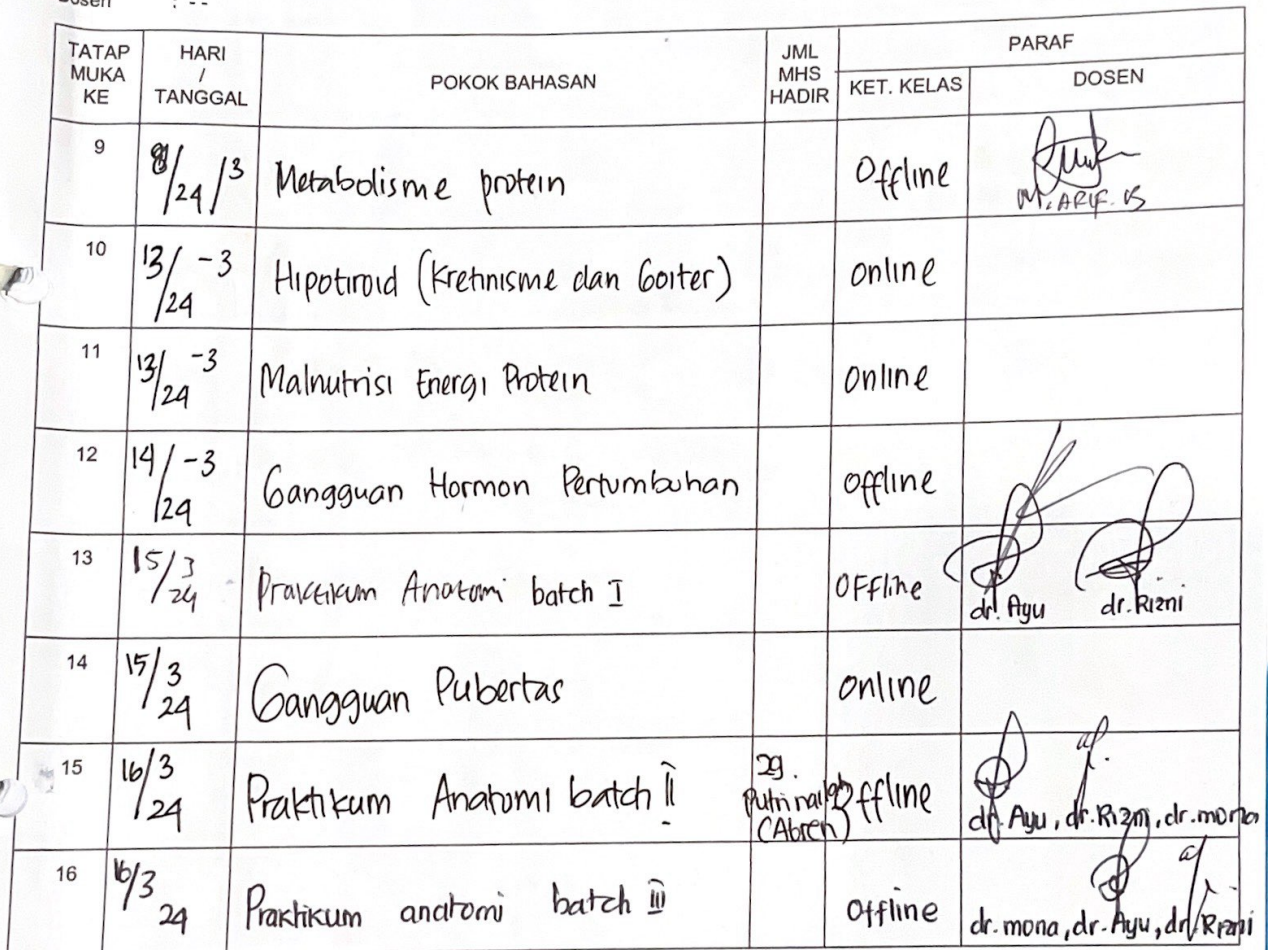 Dosen : --
TATAP MUKA KE HARI / TANGGAL POKOK BAHASAN JML MHS HADIR PARAF
KET. KELAS DOSEN
9 8/24/3 Metabolisme protein Offline
M. ARIF. VS
10 13/-3/24 Hipotiroid (Kretinisme dan Goiter) online
11 13/-3/24 Malnutrisi Energi Protein online
12 14/-3/24 Gangguan Hormon Pertumbuhan offline
13 15/3/24 Praktikum Anatomi batch I OFFline dr. Ayu dr. Rizni
14 15/3/24 Gangguan Pubertas online
15 16/3/24 Praktikum Anatomi batch II 29. Putri (Absen) Offline dr. Ayu, dr. Rizni, dr. mona
16 16/3 24 Praktikum anatomi batch III offline dr. mona, dr. Ayu, dr. Rizni